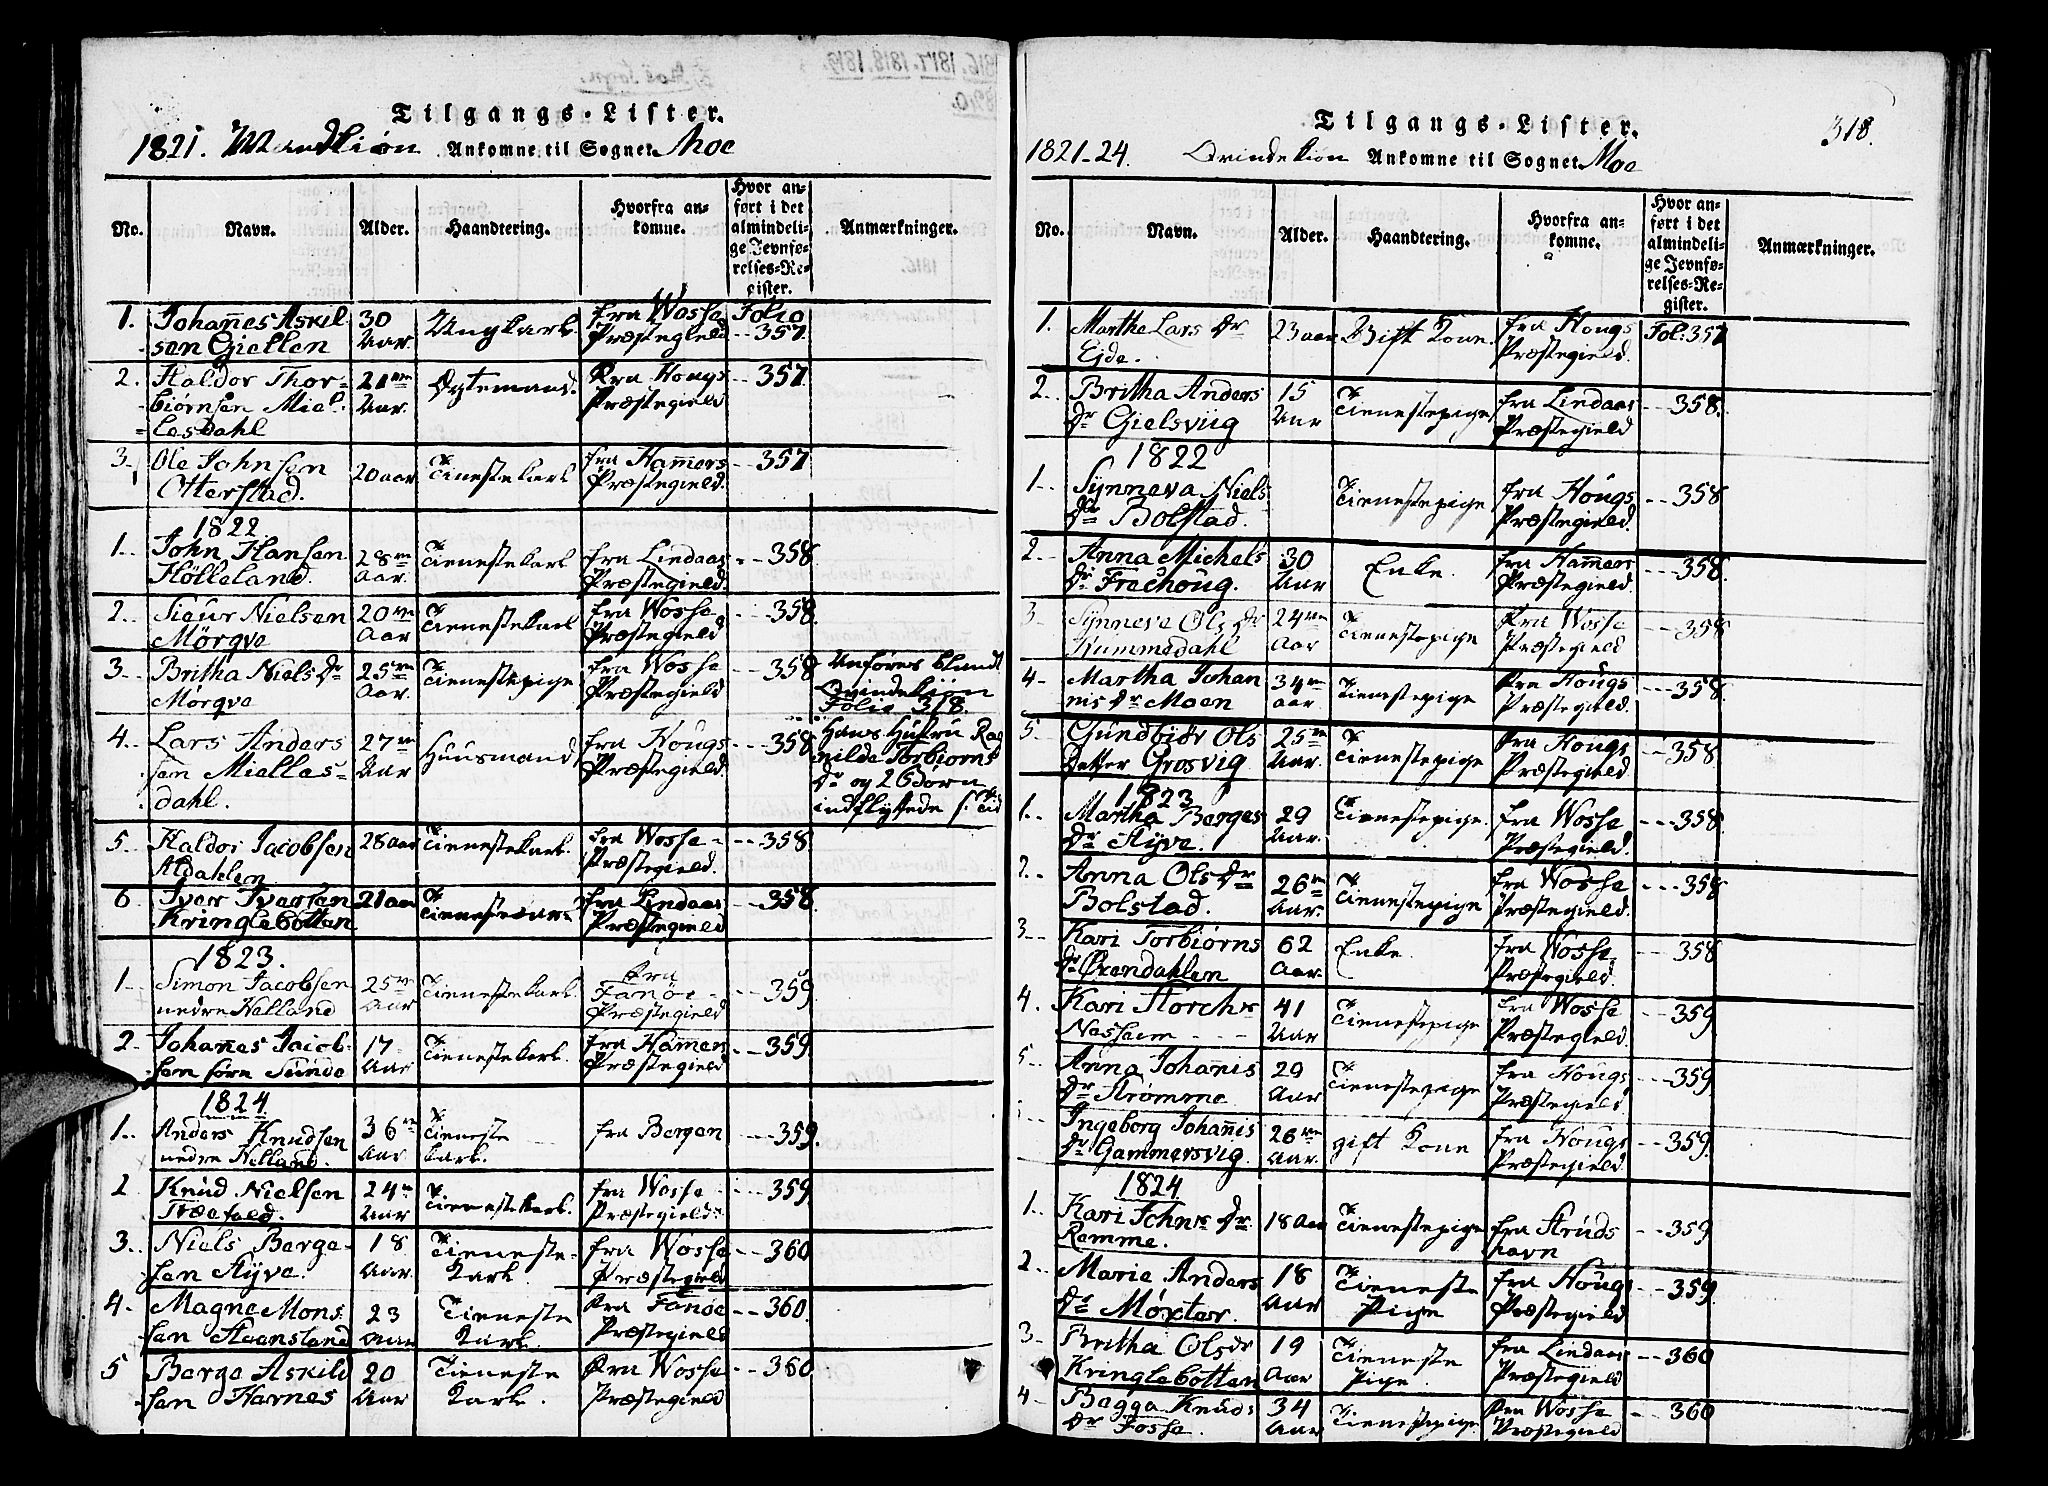 Tilgangs-Lister.
1821. Mandkiøn Ankomne til Sognet Moe
No. Navn. Alder. Haandtering. Hvorfra ankomne. Hvor anført i det almindelige Jevnførelses-Register. Anmærkninger.
1. Johan̄es Askil 30 Ungkarl. fra Wosse Folio
sen Giellen Aar. Præstegield 357.
2. Haldor Thor- 21 Aar. Ægtemand. Fra Hougs -- 357
biørnsen Miel- Præstegield
lesdahl
3. Ole Johnsen 20 aar Tienestekarl fra Ham̄ers -- 357
Otterstad. Præstegield.
1822
1.. John Hansen 28 Tienestekarl fra Lindaas - 358.
Hölleland. Aar. Præstegield.
2.. Siur Nielsen 20 Tienestekarl fra Wosse -- 358.
Mörqve Aar Præstegield
3.. Britha Niels Dr 25 Tienestepige fra Wosse -- 358 Anføres blandt
Mørqve Aar. Præstegield Qvindekiøn
Folio 318.
4.. Lars Anders 27 Huusmand fra Hougs -- 358 Hans Hustru Rag
sen Mielles- Aar Præstegield nilde Torbiørns
dahl. Dr og 2 Børn
indflyttede
5. Haldor Jacobsen 28 aar Tienestekarl. fra Wosse -- 358
Aldahlen Præstegield.
6 Iver Iversen 21 aar fra Lindaas -- 358.
Kringlebotten Præstegield
1823.
1.. Simon Jacobsen 25 Tienestekarl. Fra -- 359.
nedre Helland Aar Fanöe
Præstegield
2.. Johan̄es Jacob- 17 Tienestekarl. fra Ham̄ers -- 359.
sen Sunde Aar Præstegield
1824
1.. Anders Knudsen 36 Tieneste fra Bergen -- 359.
nedre Helland. Aar karl.
2 Knud Nielsen 24 Tienestekarl. fra Wosse --- 359
Træefald. Aar Præstegield
3.. Niels Berge- 18 Tieneste- fra Wosse -- 360
sen Styve. Aar. karl. Præstegield
4.. Magne Mons 23 Tieneste Fra Fanöe -- 360.
sen Aar karl. Præstegield
5 Berge Askild 20 Tieneste Fra Wosse -- 360.
sen Hornes Aar karl. Præstegield
Tilgangs-Lister. 318.
1821-24. Qvindekiøn Ankomne til Sognet Moe
No. Navn. Alder. Haandtering. Hvorfra ankomne. Hvor anført i det almindelige Jevnførelses-Register. Anmærkninger.
1. Marthe Lars Dr 23 aar Gift Kone. fra Hougs Fol: 357
Eide. Præstegield.
2.. Britha Anders 15 Tienestepige fra Lindaas -- 358.
Dr Gielsviig Aar Præstegield
1822
1.. Synneva Niels Tienestepige fra Hougs --- 358
Dr Bolstad. Præstegield.
2.. Anna Michels 30 Enke. fra Ham̄ers --- 358.
Dr Frechoug. Aar Præstegield.
3. Synneve Ols Dr 24 Tienestepige Fra Wosse --- 358
Hummedahl Aar Præstegield
4.. Martha Johan 34 Tienestepige Fra Hougs --- 358
nis Dr Moen aar Præstegield.
5 Gundbiør Ols 25 Tienestepige Fra Hougs -- 358.
Datter Grosvig Aar. Præstegield
1823
1.. Martha Berges 29 Tienestepige. fra Wosse --- 358.
Dr Styve. Aar. Præstegield.
2.. Anna Ols Dr 26 Tienestepige fra Wosse --- 358
Bolstad. Aar. Præstegield.
3.. Kari Torbiørns 62 Enke. fra Wosse -- 358
Dr Øxendahlen Aar. Præstegield.
4. Kari 41 Tienestepige fra Wosse --- 359
Nesheim Aar Præstegield
5.. Anna Johan̄is 29 Tienestepige fra Hougs --- 359.
Dr Strømme Aar Præstegield
Ingeborg Johan̄is 26 gift Kone fra Hougs -- 359.
Dr Gammersvig Aar. Præstegield
1824
1.. Kari Johns Dr 18 Aar Tienestepige fra Struds -- 359
Romme. havn
2.. Marie Anders 18 Tieneste fra Hougs ---- 359.
Dr Møxtar. Aar Pige Præstegield
3.. Britha Ols dr 19 Tieneste fra Lindaas -- 360
Kringlebotten Aar Pige. Præstegield
4.. Bogga Knuds 34 Tienestepige Fra Wosse -- 360
Dr Fosse. Aar Præstegield